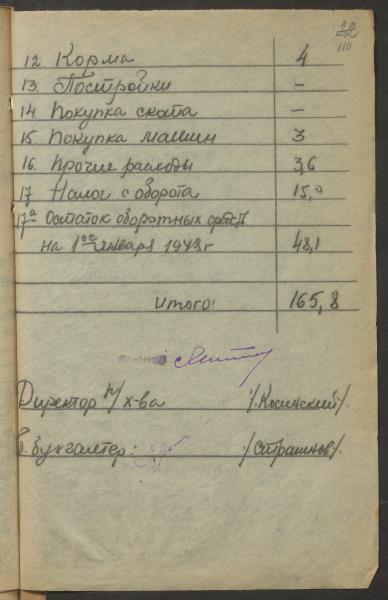 22
110
12. Корма 4
13. Постройки –
14 Покупка скота –
15. Покупка машин 3
16. Прочие расходы 3,6
17 Налог с оборота 15,0
17а Остаток оборотных средств
на 1ое января 1943 г 48,1
Итого: 165,8
Директор п/х-ва /Косинский/.
Гл. бухгалтер: /Страшнов/.